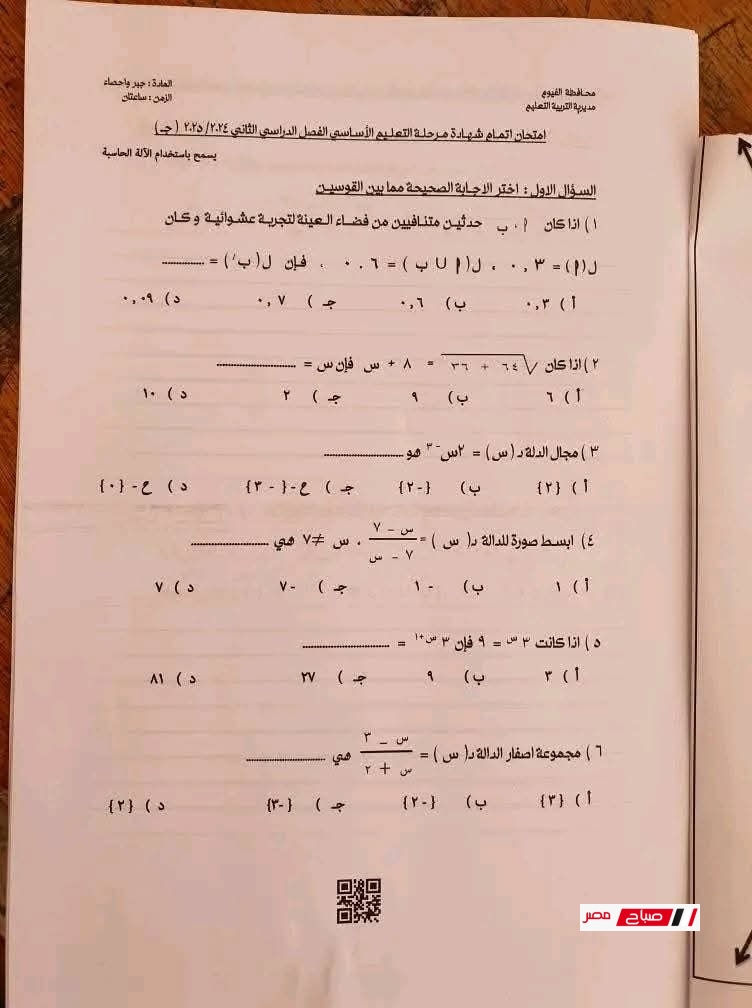 محافظة الفيوم
مديرية التربية التعليم
المادة : جبر واحصاء
الزمن : ساعتان
امتحان اتمام شهادة مرحلة التعليم الأساسي الفصل الدراسي الثاني ٢٠٢٤/ ٢٠٢٥ ( جـ )
يسمح باستخدام الآلة الحاسبة
السؤال الاول : اختر الاجابة الصحيحة مما بين القوسين
١ ) اذا كان أ ، ب حدثين متنافيين من فضاء العينة لتجربة عشوائية و كان
ل(أ) = ٠,٣ ، ل(أ U ب ) = ٠.٦ ، فإن ل( ب/ ) = ..............
أ ) ٠,٣ ب) ٠,٦ جـ ) ٠,٧ د ) ٠,٠٩
٢ ) اذا كان √٦٤ + ٣٦ = ٨ + س فإن س = ..........................
أ ) ٦ ب) ٩ جـ ) ٢ د ) ١٠
٣ ) مجال الدلة د ( س ) = ٢س-٣ هو ..........................
أ ) {٢} ب) {-٢} جـ ) ح-{ -٣} د ) ح- {٠}
٤ ) ابسط صورة للدالة د( س ) = س - ٧ / ٧ - س ، س ≠ ٧ هي ..........................
أ ) ١ ب) -١ جـ ) -٧ د ) ٧
٥ ) اذا كانت ٣ س = ٩ فإن ٣ س+١ = ..............................
أ ) ٣ ب) ٩ جـ ) ٢٧ د ) ٨١
٦ ) مجموعة اصفار الدالة د( س ) = س - ٣ / س + ٢ هي ..........................
أ ) {٣} ب) {-٢} جـ ) {-٣} د ) {٢}
صباح مصر